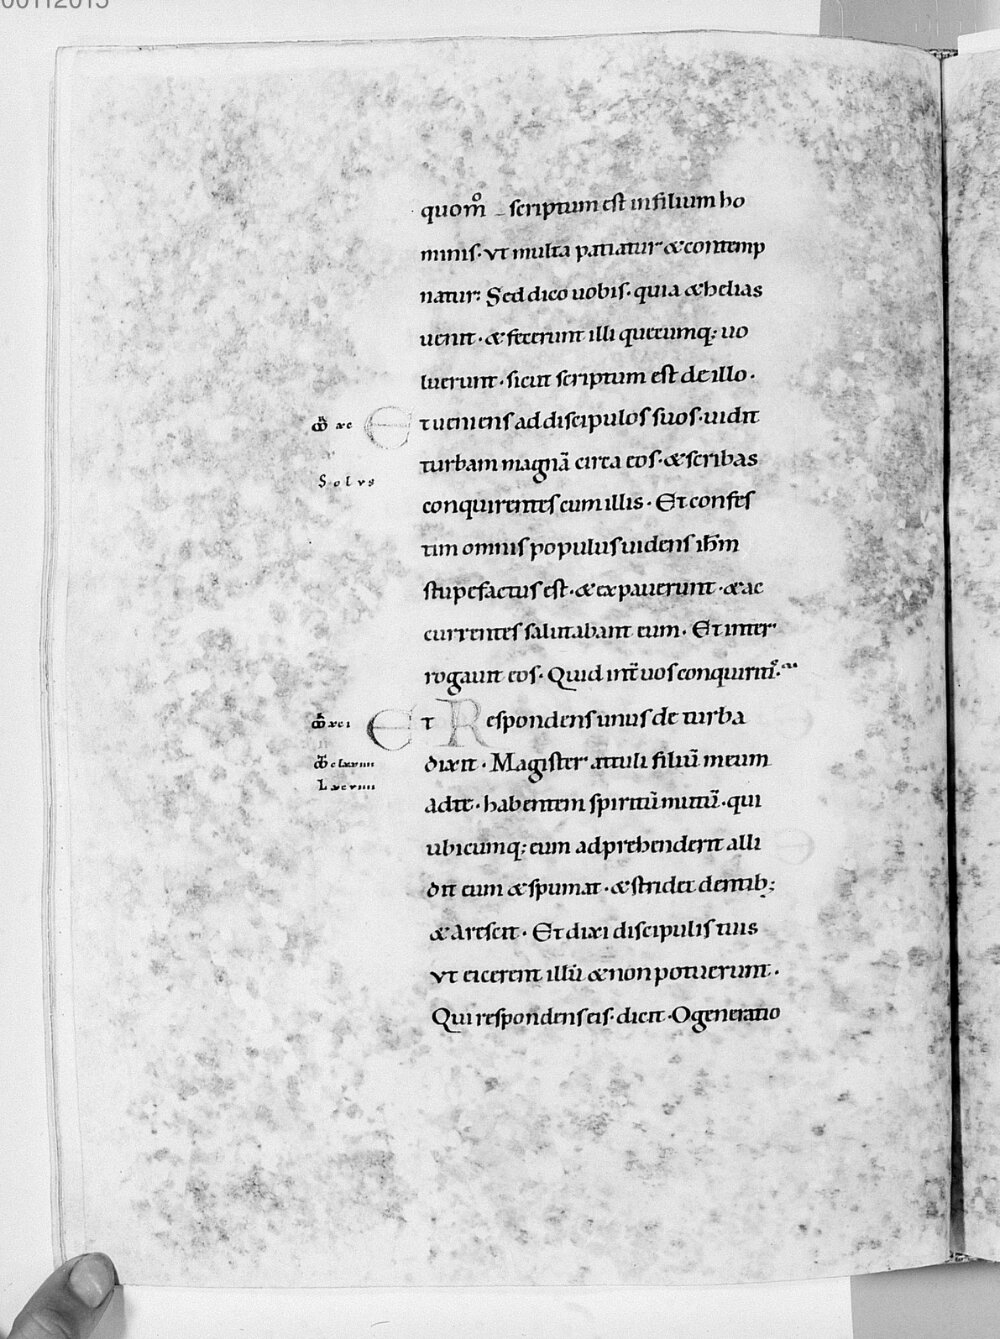 00112015
quom̊ scriptum est in filium ho
minis· vt multa patiatur & contemp
natur: Sed dico uobis· quia & helias
uenit· & fecerunt illi quecumq; uo
luerunt· sicut scriptum est de illo·
xc Et ueniens ad discipulos suos· uidit
turbam magnā circa eos· & scribas
Solvs
conquirentes cum illis· Et confes
tim omnis populus uidens ihm̄
stupefactus est· & expauerunt· & ac
currentes salutabant eum· Et inter
rogauit eos· Quid int̄ uos conquiriti·
xci Et Respondens unus de turba
clxviiii dixit· Magister attuli filiū meum
Lxcviiii
ad te· habentem spiritū mutū· qui
ubicumq; eum adprehenderit alli
dit eum & spumat· & stridet dentib;
& arescit· Et dixi discipulis tuis
vt eicerent illū & non potuerunt·
Qui respondens eis· dicit· O generatio